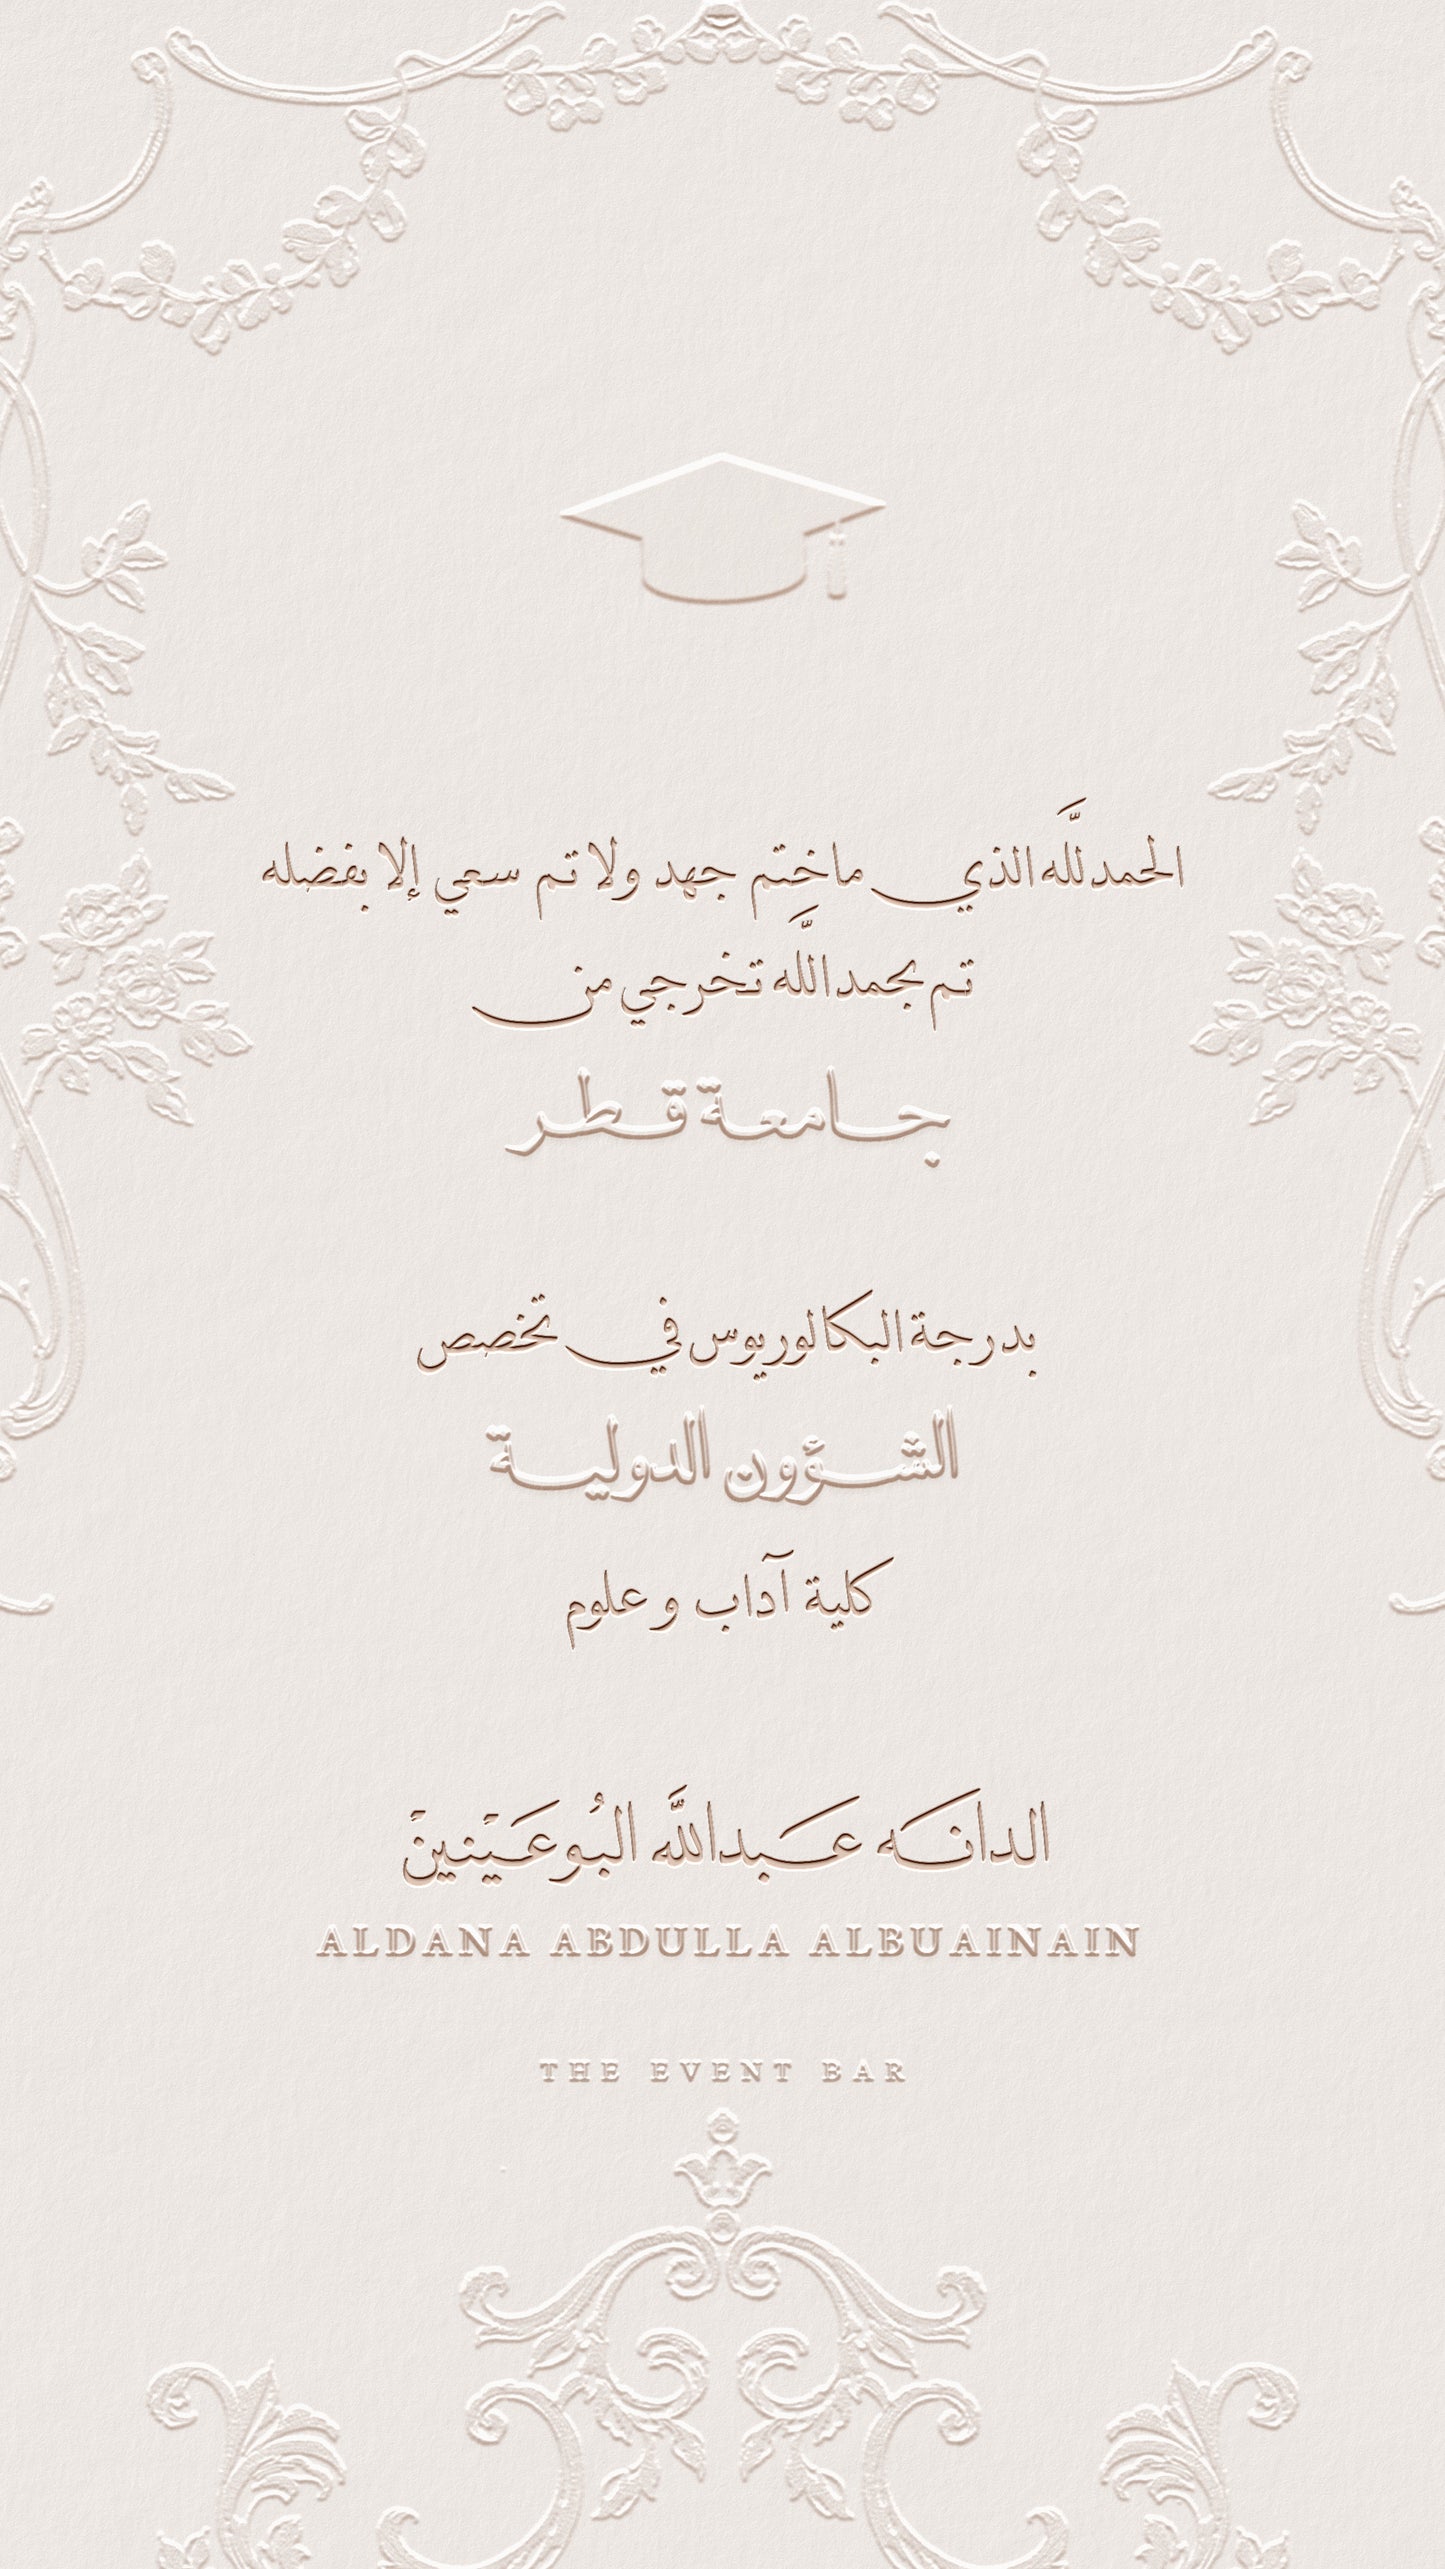 الحمدللَّه الذي ماختم جهد ولا تم سعي إلا بفضله
تم بحمد اللَّه تخرجي من
جامعة قطر
بدرجة البكالوريوس في تخصص
الشؤون الدولية
كلية آداب و علوم
الدانَه عَبدالله البُوعَيْنينْ
ALDANA ABDULLA ALBUAINAIN
THE EVENT BAR